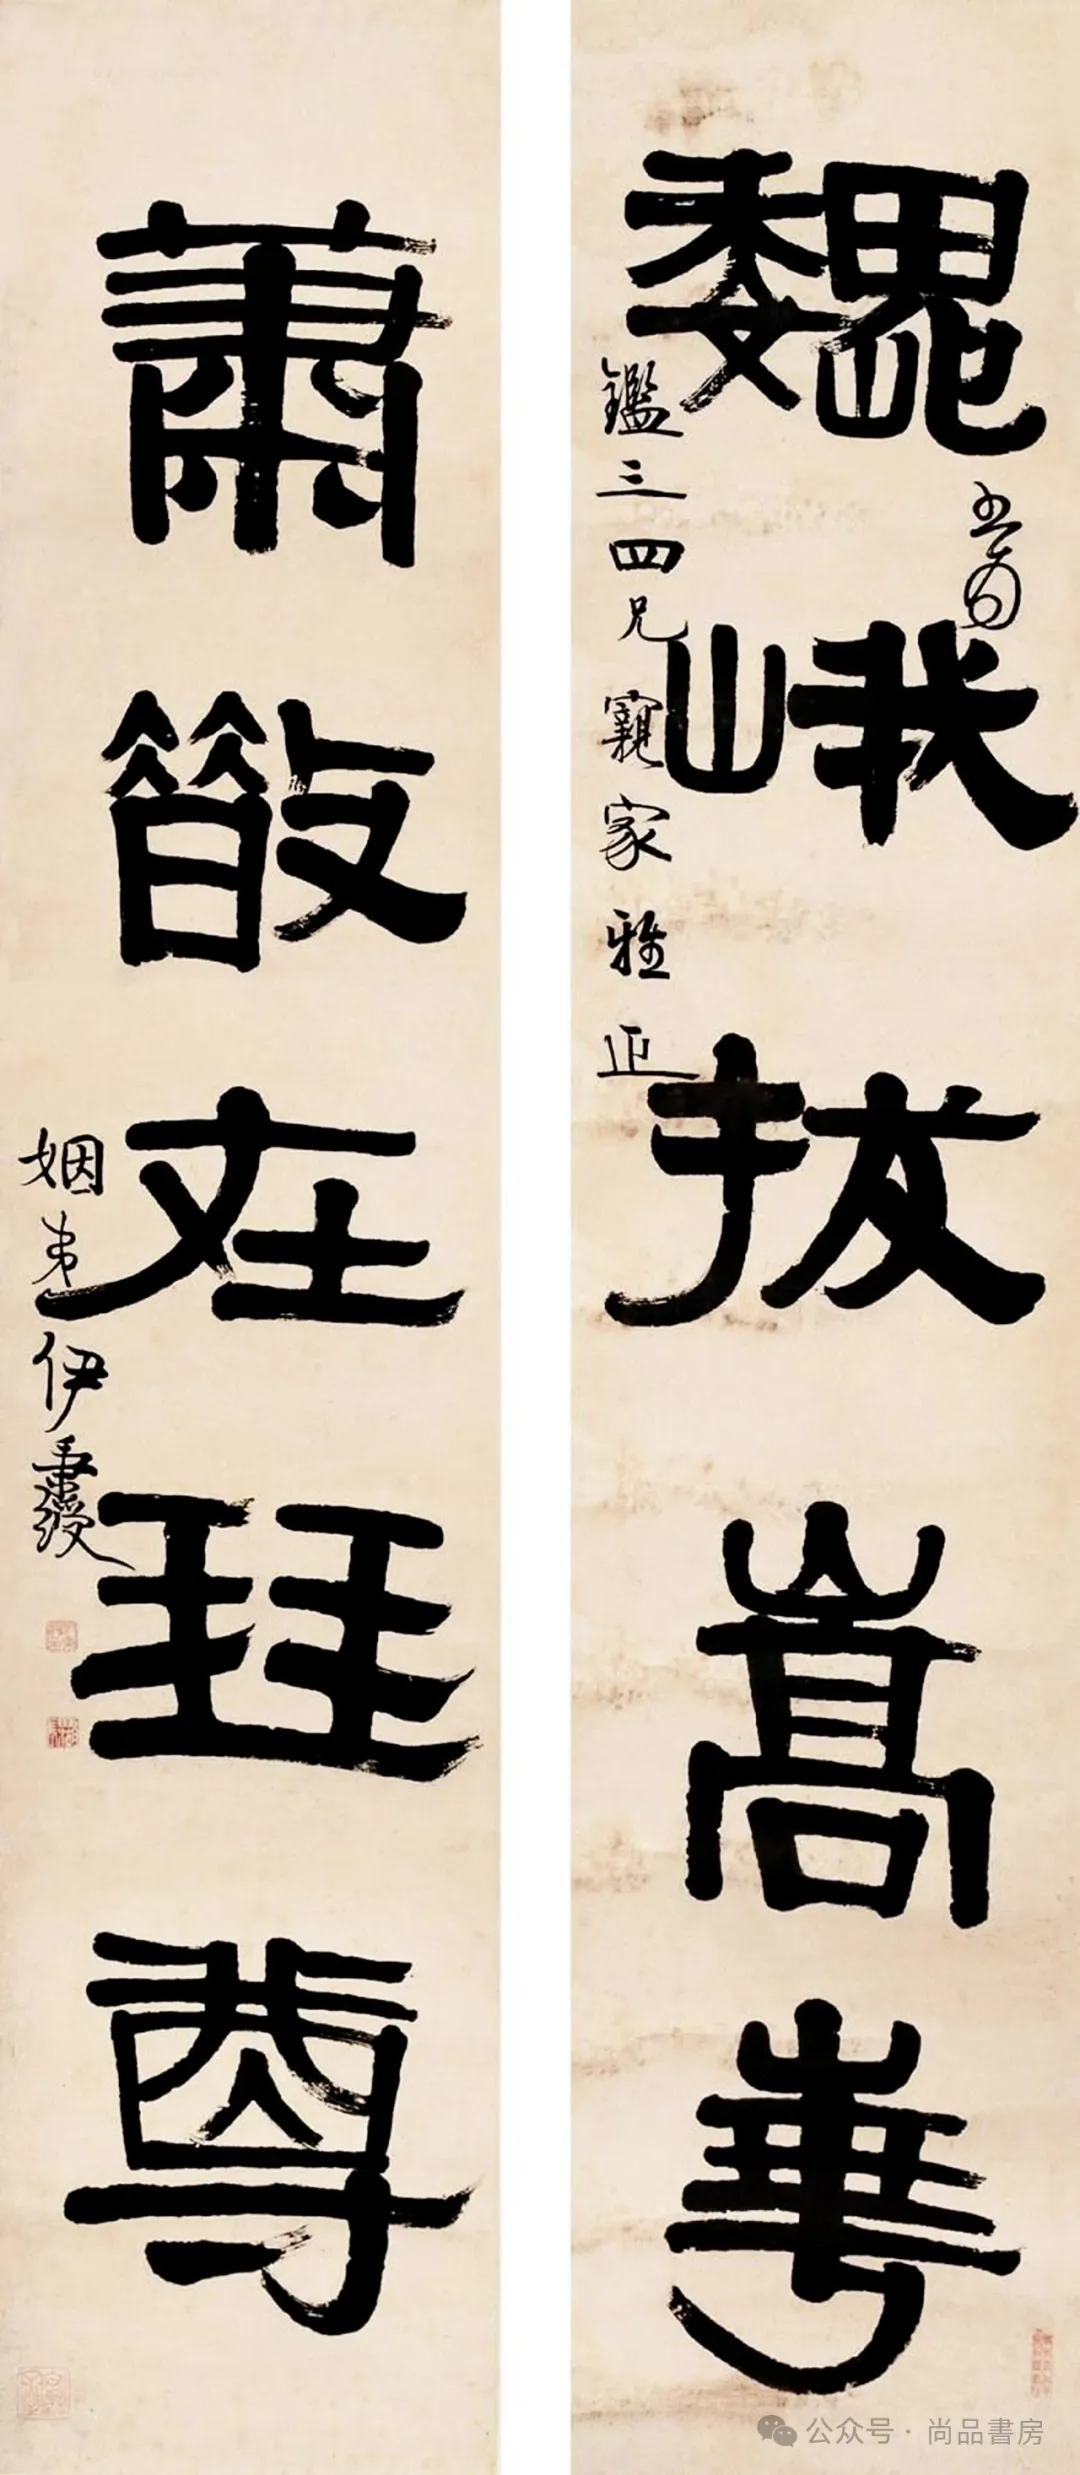 巍峨拔嵩華
書為
鑑三四兄親家雅正
蕭散在琴尊
姻弟伊秉綬
公众号 · 尚品書房